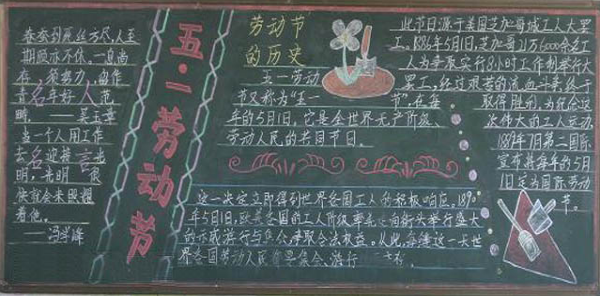 春蚕到死丝方尽,人至
期颐亦不休。一息尚
存,须努力,留作
青年好人范
畴。——吴玉章
当一个人用工作
去迎接光
明,光明
很快就会来照耀
着他。
——冯学峰
五·一劳动节
劳动节
的历史
五一劳动
节又称为"五一
节",在每
年的5月1日。它是全世界无产阶级、
劳动人民的共同节日。
此节日源于美国芝加哥城工人大罢
工,1886年5月1日,芝加哥21万6000余名工
人为争取实行8小时工作制举行大
罢工,经过艰苦的流血斗争,终于
取得胜利。为纪念这
次伟大的工人运动
1889年7月第二国际
宣布将每年的5月
1日定为国际劳动
节。
这一决定立即得到世界各国工人的积极响应。1890
年5月1日,欧美各国的工人阶级率先走向街头举行盛大
的示威游行与集会,争取合法权益。从此,每逢这一天世
界各国劳动人民都要集会、游行